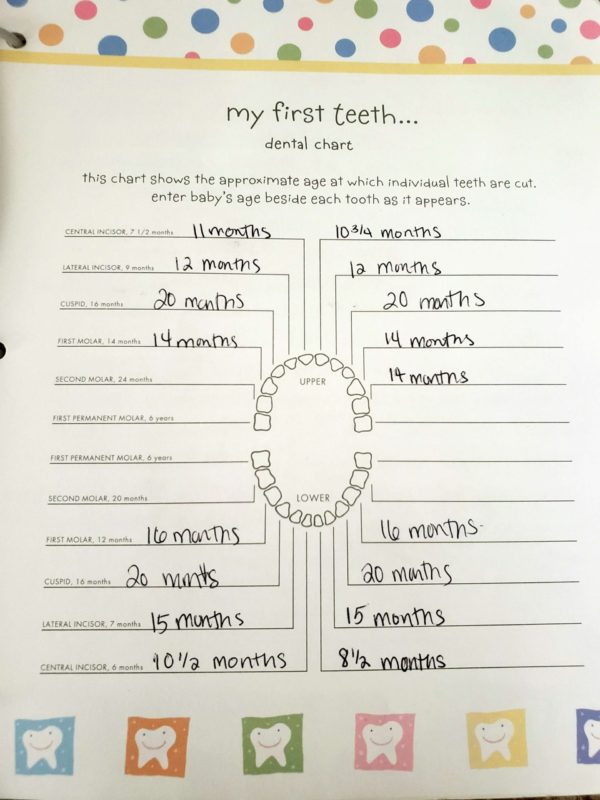 my first teeth...
dental chart
this chart shows the approximate age at which individual teeth are cut.
enter baby's age beside each tooth as it appears.
CENTRAL INCISOR, 7 1/2 months 11 months 10 3/4 months
LATERAL INCISOR, 9 months 12 months 12 months
CUSPID, 16 months 20 months 20 months
FIRST MOLAR, 14 months 14 months 14 months
SECOND MOLAR, 24 months 14 months
UPPER
FIRST PERMANENT MOLAR, 6 years
FIRST PERMANENT MOLAR, 6 years
SECOND MOLAR, 20 months
LOWER
FIRST MOLAR, 12 months 16 months 16 months
CUSPID, 16 months 20 months 20 months
LATERAL INCISOR, 7 months 15 months 15 months
CENTRAL INCISOR, 6 months 10 1/2 months 8 1/2 months